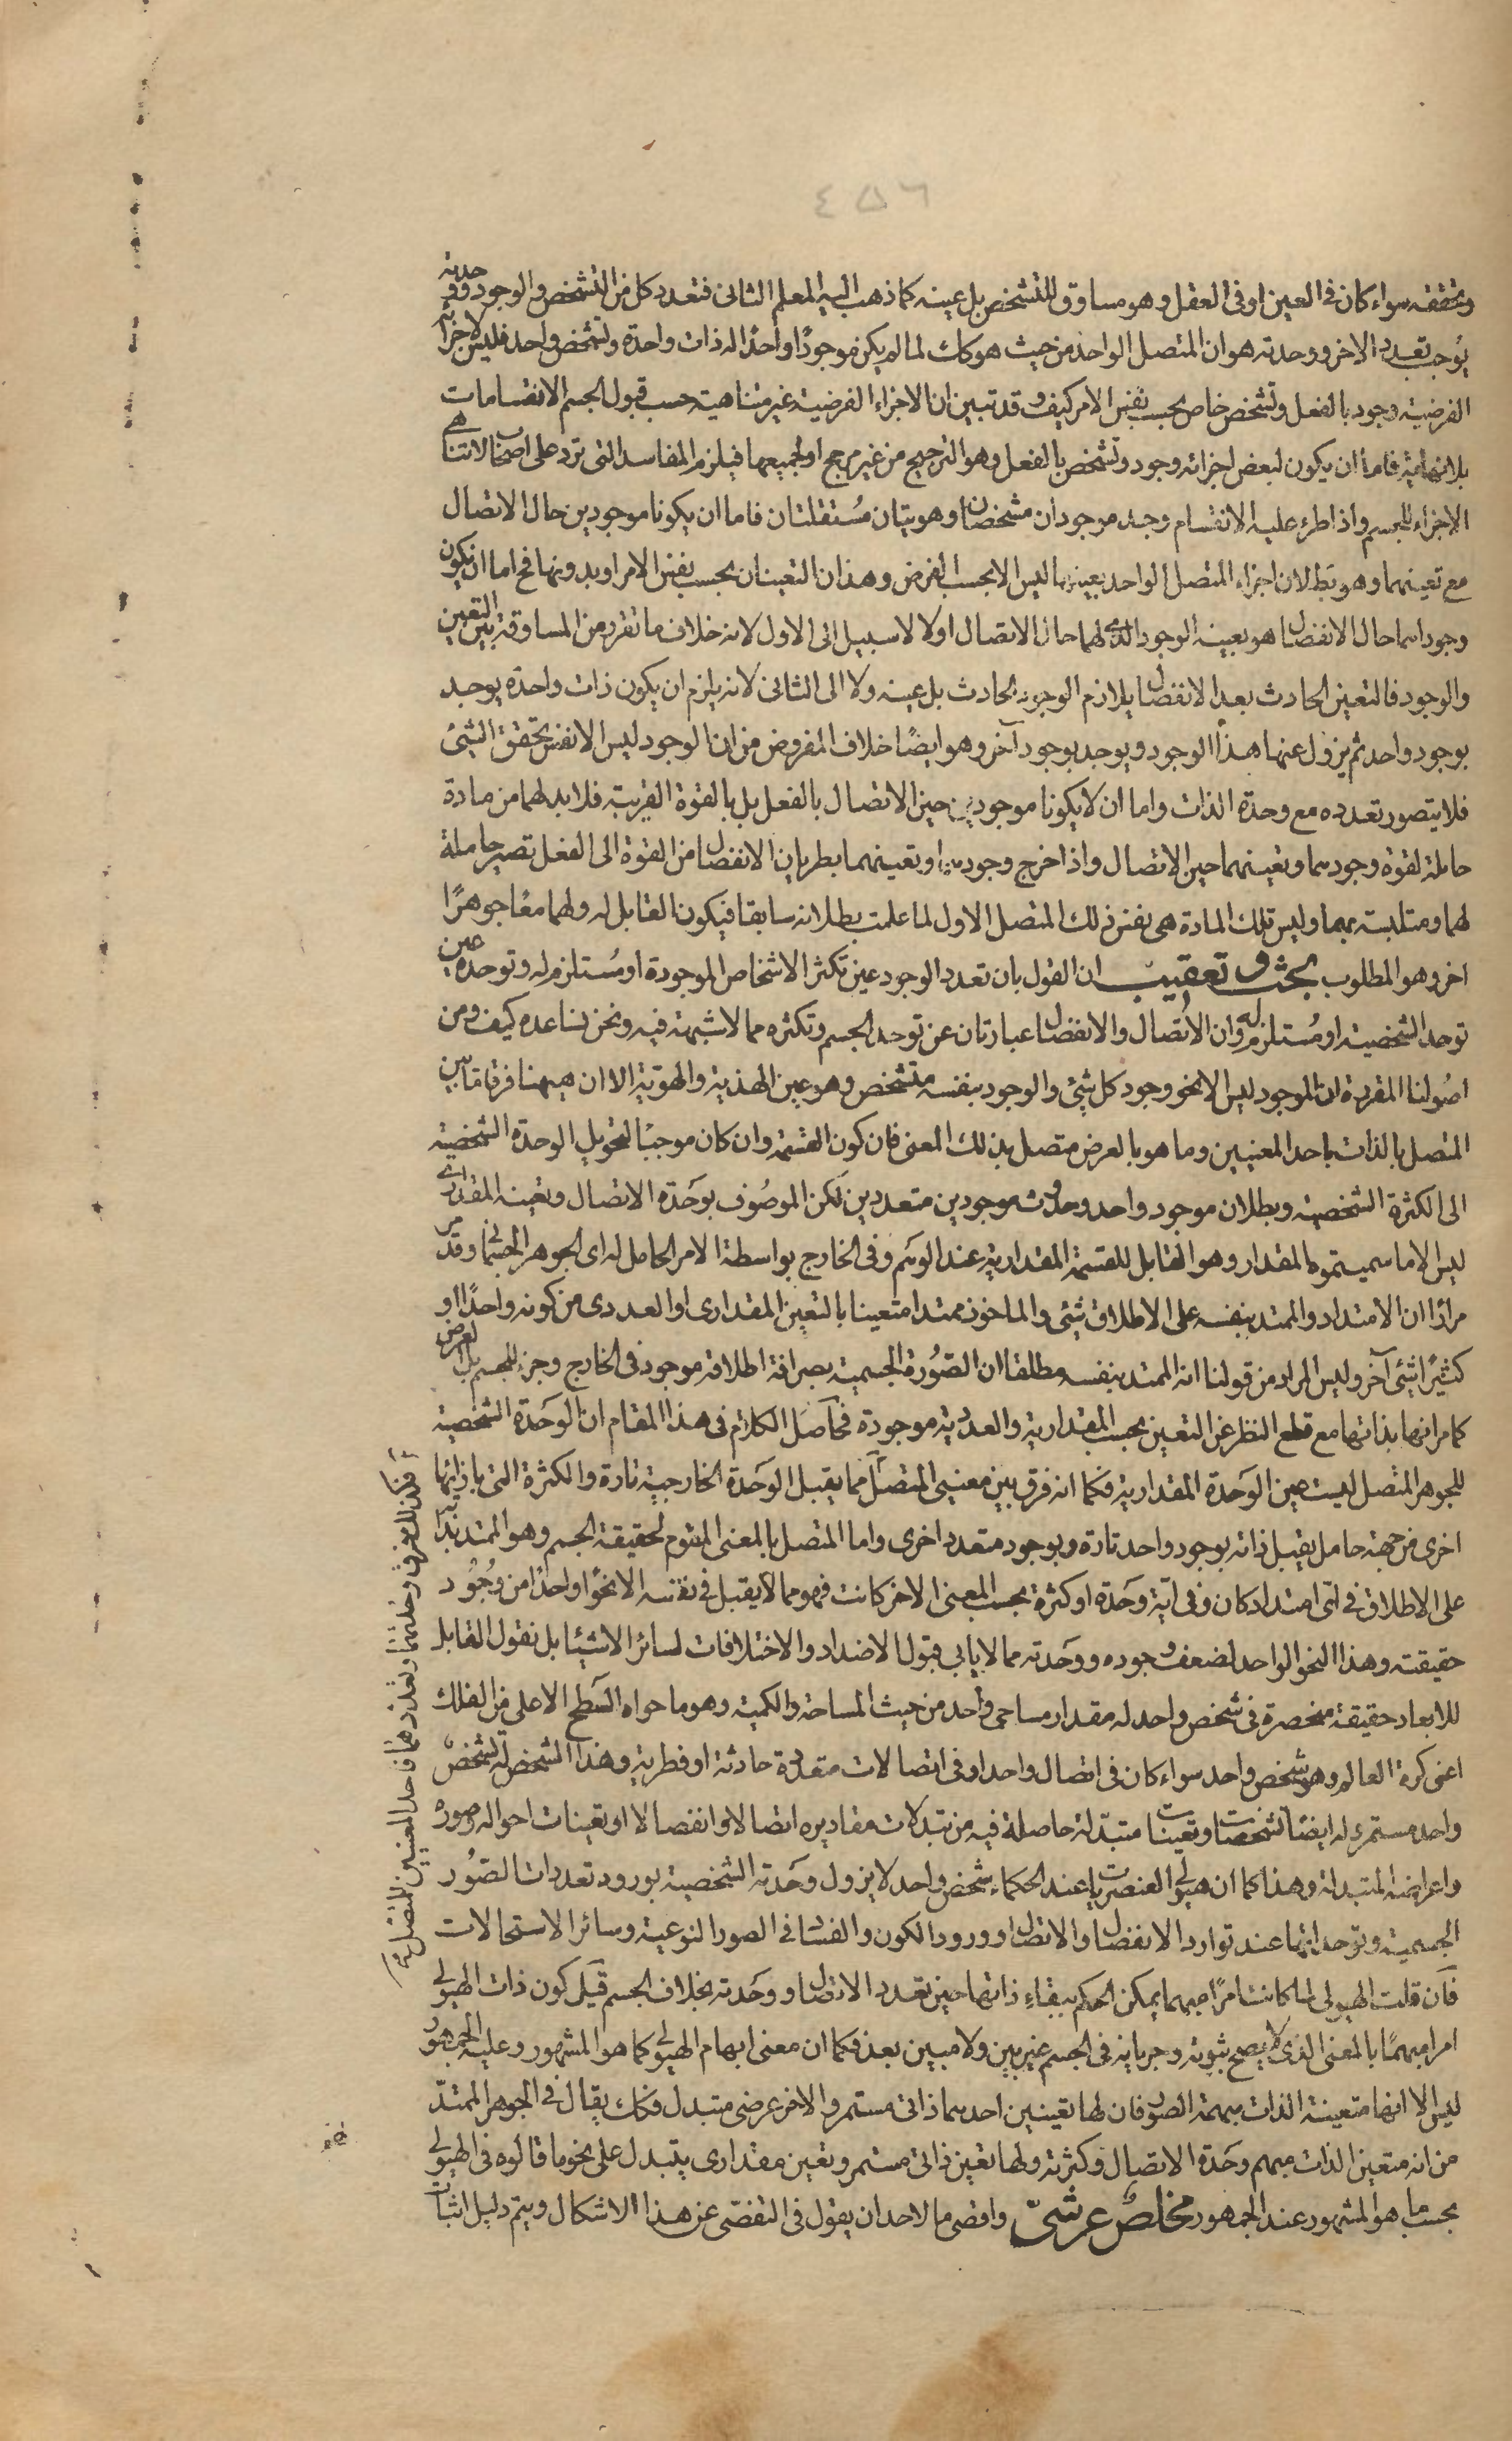 ٤٥٦
وتحققه سواء كان فى العين او فى العقل وهو مساوق للتشخص بل عينه كما ذهب اليه المعلم الثانى فتعدد كل من التشخص والوجود ووحدته
يوجب تعدد الاخر ووحدته هو ان المتصل الواحد من حيث هو كك لما لم يكن موجودًا واحدًا له ذات واحدة وتشخص واحد فليس لاجزائه
الفرضية وجود بالفعل وتشخص خاص بحسب نفس الامر كيف وقد تبين ان الاجزاء الفرضية غير متناهية حسب قبول الجسم الانقسامات
بلا نهاية فاما ان يكون لبعض اجزائه وجود وتشخص بالفعل وهو الترجيح من غير مرجح او لجميعها فيلزم المفاسد التى ترد على اصحاب لا تناهى
الاجزاء للجسم واذا طرء عليه الانقسام وجد موجودان مشخصان او هويتان مستقلتان فاما ان يكونا موجودين حال الاتصال
مع تعينهما وهو بط لان اجزاء المتصل الواحد بعينها ليس الا بحسب الفرض وهذان التعينان بحسب نفس الامر او بدونها فح اما ان يكون
وجوداهما حال الانفصال هو بعينه الوجود الذى لهما حال الاتصال اولا لا سبيل الى الاول لانه خلاف ما تقرر من المساوقة بين التعين
والوجود فالتعين الحادث بعد الانفصال يلازم الوجود الحادث بل عينه ولا الى الثانى لانه يلزم ان يكون ذات واحدة يوجد
بوجود واحد ثم يزول عنها هذا الوجود ويوجد بوجود آخر وهو ايضًا خلاف المفروض من ان الوجود ليس الا نفس تحقق الشئ
فلا يتصور تعدده مع وحدة الذات واما ان لا يكونا موجودين حين الاتصال بالفعل بل بالقوة القريبة فلا بد لهما من مادة
حاملة لقوة وجودهما وتعينهما حين الاتصال واذا خرج وجودهما وتعينهما بطريان الانفصال من القوة الى الفعل تصير حاملة
لهما ومتلبسة بهما وليس تلك المادة هى نفس ذلك المتصل الاول لما علمت بطلانه سابقا فيكون القابل له ولهما معًا جوهرًا
اخر وهو المطلوب بحث وتعقيب ان القول بان تعدد الوجود عين تكثر الاشخاص الموجودة او مستلزم له وتوحده عين
توحد الشخصية او مستلزم له وان الاتصال والانفصال عبارتان عن توحد الجسم وتكثره مما لا شبهة فيه ونحن نساعده كيف ومن
اصولنا المقررة ان الموجود ليس الا نحو وجود كل شئ والوجود بنفسه متشخص وهو عين الهذية والهوية الا ان هيهنا فرقا ما بين
المتصل بالذات باحد المعنيين وما هو بالعرض متصل بذلك المعنى فان كون القسمة وان كان موجبًا لتحويل الوحدة الشخصية
الى الكثرة الشخصية وبطلان موجود واحد وحدوث موجودين متعددين لكن الموصوف بوحدة الاتصال وتعينه المقدارى
ليس الا ما سميتموه المقدار وهو القابل للقسمة المقدارية عند الوهم وفى الخارج بواسطة الامر الحامل له اى الجوهر الجسمانى وقد مر
مرارًا ان الامتداد والممتد بنفسه على الاطلاق شئ والماخوذ ممتدا متعينا بالتعين المقدارى او العددى من كونه واحدًا او
كثيرًا شئ آخر وليس المراد من قولنا انه الممتد بنفسه مطلقا ان الصورة الجسمية بصرافة اطلاقه موجود فى الخارج وجزء للجسم بل الغرض
كما مر انها بذاتها مع قطع النظر عن التعين بحسب المقدارية والعددية موجودة فحاصل الكلام فى هذا المقام ان الوحدة الشخصية
للجوهر المتصل ليست عين الوحدة المقدارية فكما انه فرق بين معنيى المتصل مما يقبل الوحدة الخارجية تارة والكثرة التى بازائها
اخرى من جهة حامل يقبل ذاته بوجود واحد تارة وبوجود متعدد اخرى واما المتصل بالمعنى المقوم لحقيقة الجسم وهو الممتد بذاته
على الاطلاق فى اى امتداد كان وفى اية وحدة او كثرة بحسب المعنى الاخر كانت فهو مما لا يقبل فى نفسه الا نحوًا واحدًا من وجود
حقيقته وهذا النحو الواحد لضعف وجوده ووحدته مما لا يابى قبول الاضداد والاختلافات لسائر الاشياء بل نقول القابل
للابعاد حقيقة منحصرة فى شخص واحد له مقدار مساحى واحد من حيث المساحة والكمية وهو ما حواه السطح الاعلى من الفلك
اعنى كرة العالم وهو شخص واحد سواء كان فى اتصال واحد او فى اتصالات متعددة حادثة او فطرية وهذا الشخص له تشخص
واحد مستمر وله ايضًا تشخصات وتعينات متبدلة حاصلة فيه من تبدلات مقاديره اتصالا وانفصالا او تعينات احواله وصوره
واعراضه المتبدلة وهذا كما ان هيولى العنصريات عند الحكماء شخص واحد لا يزول وحدته الشخصية بورود تعددات الصور
الجسمية وتوحداتها عند توارد الانفصال والاتصال او ورود الكون والفساد فى الصور النوعية وسائر الاستحالات
فان قلت الهيولى لما كانت امرًا مبهما يمكن الحكم ببقاء ذاتها حين تعدد الاتصال ووحدته بخلاف الجسم قيل كون ذات الهيولى
امرا مبهمًا بالمعنى الذى لا يصح ثبوته وجريانه فى الجسم غير بين ولا مبين بعد فكما ان معنى ابهام الهيولى كما هو المشهور وعليه الجمهور
ليس الا انها متعينة الذات مبهمة الصور فان لها تعينين احدهما ذاتى مستمر والاخر عرضى متبدل فكك يقال فى الجوهر الممتد
من انه متعين الذات مبهم وحدة الاتصال وكثرته ولها تعين ذاتى مستمر وتعين مقدارى يتبدل على نحو ما قالوه فى الهيولى
بحسب ما هو المشهور عند الجمهور مخلص عرشى واقصى ما لاحد ان يقول فى التفصى عن هذا الاشكال ويتم دليل اثبات
فكذلك فرق بين وحدتيهما وتعددهما فاحد المعنيين للمتصل